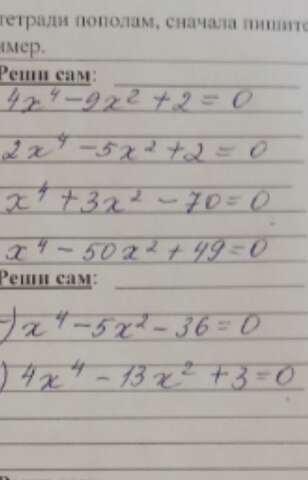 тетради пополам, сначала пишите
имер.
Реши сам:
4x⁴ - 9x² + 2 = 0
2x⁴ - 5x² + 2 = 0
x⁴ + 3x² - 70 = 0
x⁴ - 50x² + 49 = 0
Реши сам:
) x⁴ - 5x² - 36 = 0
) 4x⁴ - 13x² + 3 = 0